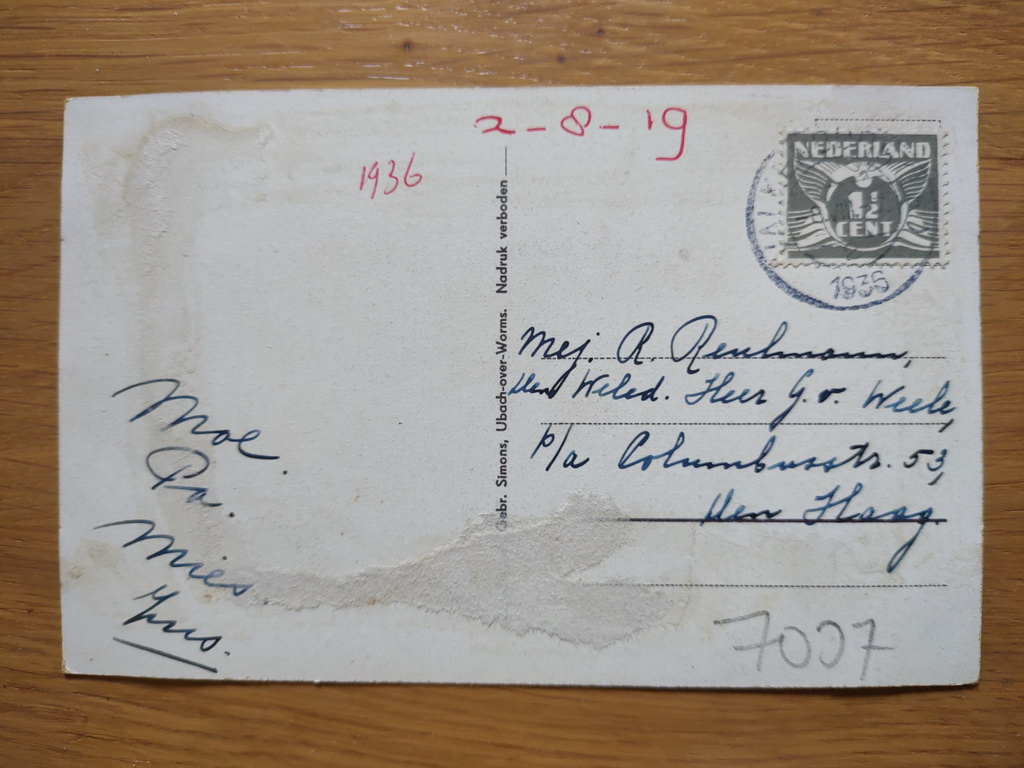 2-8-19
1936
NEDERLAND
1½
CENT
1936
Gebr. Simons, Ubach-over-Worms. Nadruk verboden
Mej. R. Reulmann,
den Weled. Heer G. v. Weele,
p/a Columbusstr. 53,
Den Haag.
Moe.
Pa.
Mies.
7007